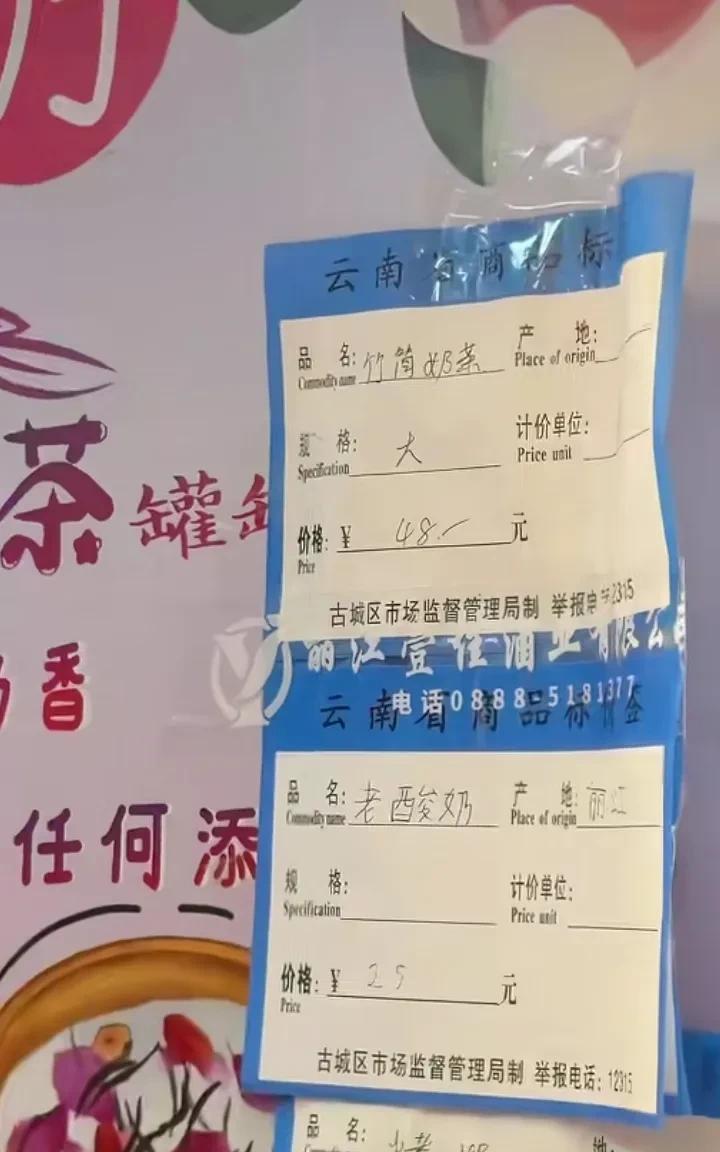 茶 罐罐
奶香
任何添
云南省商品标
品 名: 竹筒奶茶 产 地:
Commodity name Place of origin
规 格: 大 计价单位:
Specification Price unit
价格: ¥ 48.- 元
Price
古城区市场监督管理局制 举报电话12315
丽江壹佳酒业有限公司
电话0888-5181377
云南省商品标价签
品 名: 老酸奶 产 地: 丽江
Commodity name Place of origin
规 格: 计价单位:
Specification Price unit
价格: ¥ 25 元
Price
古城区市场监督管理局制 举报电话: 12315
品 名: 地: